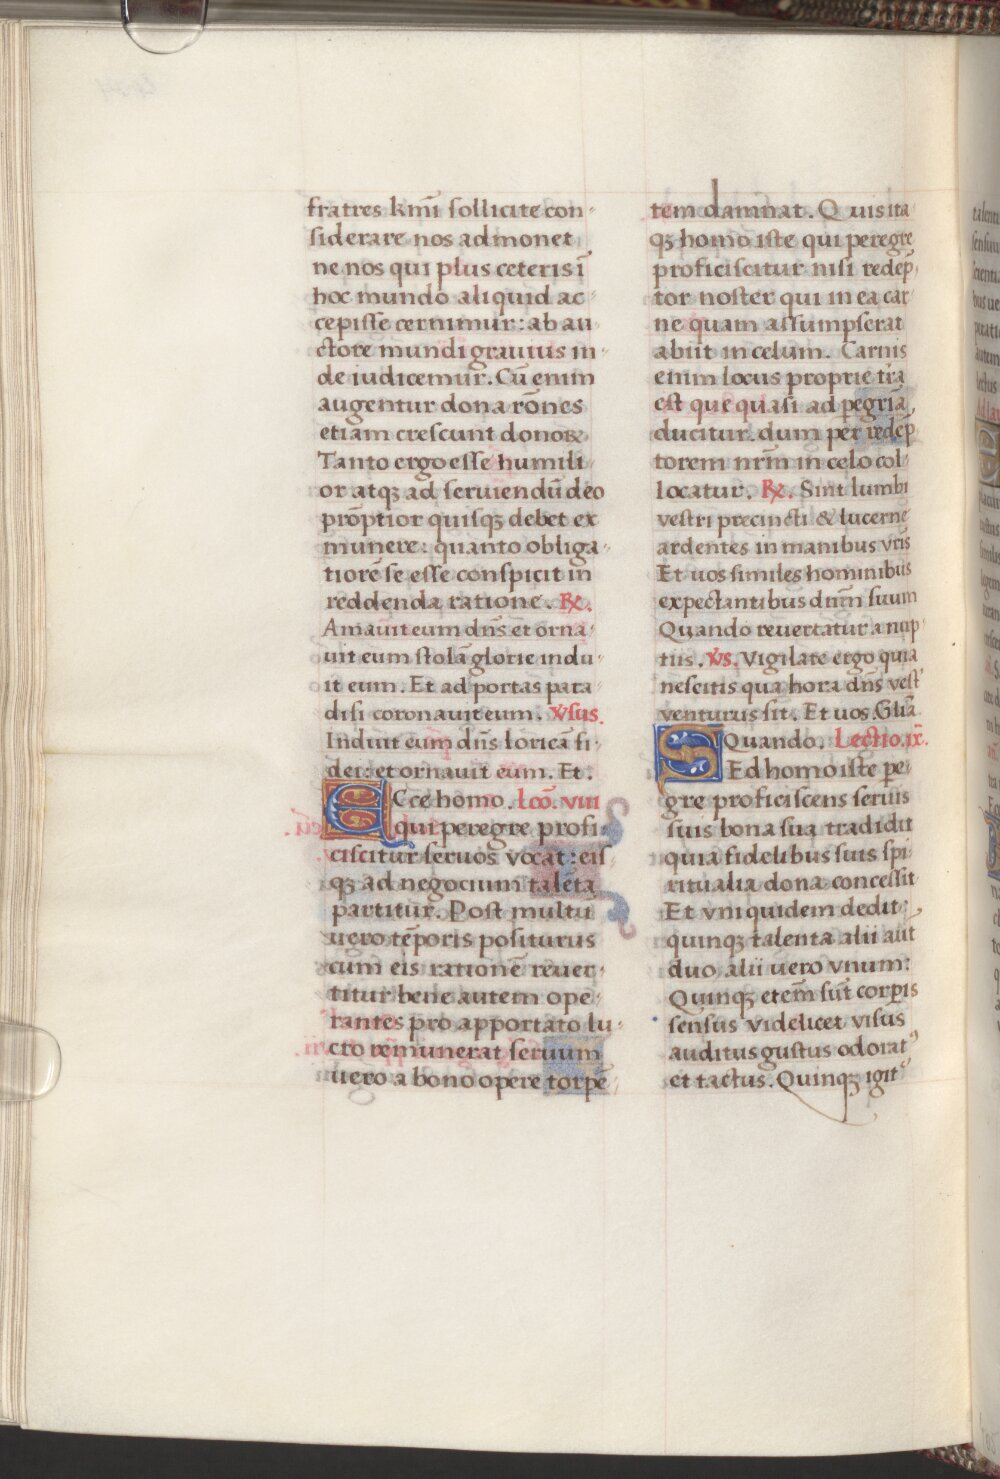 fratres kmĩ sollicite con-
siderare nos admonet
ne nos qui plus ceteris ĩ
hoc mundo aliquid ac-
cepisse cernimur: ab au
ctore mundi grauius in-
de iudicemur. Cũ enim
augentur dona rõnes
etiam crescunt donoꝝ
Tanto ergo esse humili
or atqꝫ ad seruiendũ deo
prõptior quisqꝫ debet ex
munere: quanto obliga-
tiorẽ se esse conspicit in
reddenda ratione. ℞.
Amauit eum dñs et orna-
uit eum stolã glorie indu-
it eum. Et ad portas para
disi coronauit eum. ℣sus.
Induit eum dñs loricã fi-
dei: et ornauit eum. Et.
ECce homo. Lcõ. viii
qui peregre profi-
ciscitur seruos vocat: eis
qꝫ ad negocium talẽta
partitur. Post multũ
uero tẽporis positurus
cum eis rationẽ reuer-
titur bene autem ope-
rantes pro apportato lu-
cro remunerat seruum
uero a bono opere torpẽ-
tem damnat. Quis ita
qꝫ homo iste qui peregre
proficiscitur nisi redẽp-
tor noster qui in ea car
ne quam assumpserat
abiit in celum. Carnis
enim locus proprie tr̃a
est que quasi ad ꝑegriã
ducitur dum per redẽp
torem nr̃m in celo col-
locatur. ℞. Sint lumbi
vestri precincti & lucerne
ardentes in manibus vr̃is
Et uos similes hominibus
expectantibus dñm suum
Quando reuertatur a nup-
tiis. ℣s. Vigilate ergo quia
nescitis qua hora dñs vest̾
venturus sit. Et uos. Gliã.
Quando. Lectio .ix.
SEd homo iste ꝑe-
gre proficiscens seruis
suis bona sua tradidit
quia fidelibus suis spi-
ritualia dona concessit
Et vni quidem dedit
quinqꝫ talenta alii aũt
duo, alii uero vnum:
Quinqꝫ etem̃ sũt corꝑis
sensus videlicet visus
auditus gustus odoratꝰ
et tactus. Quinqꝫ igit᷑